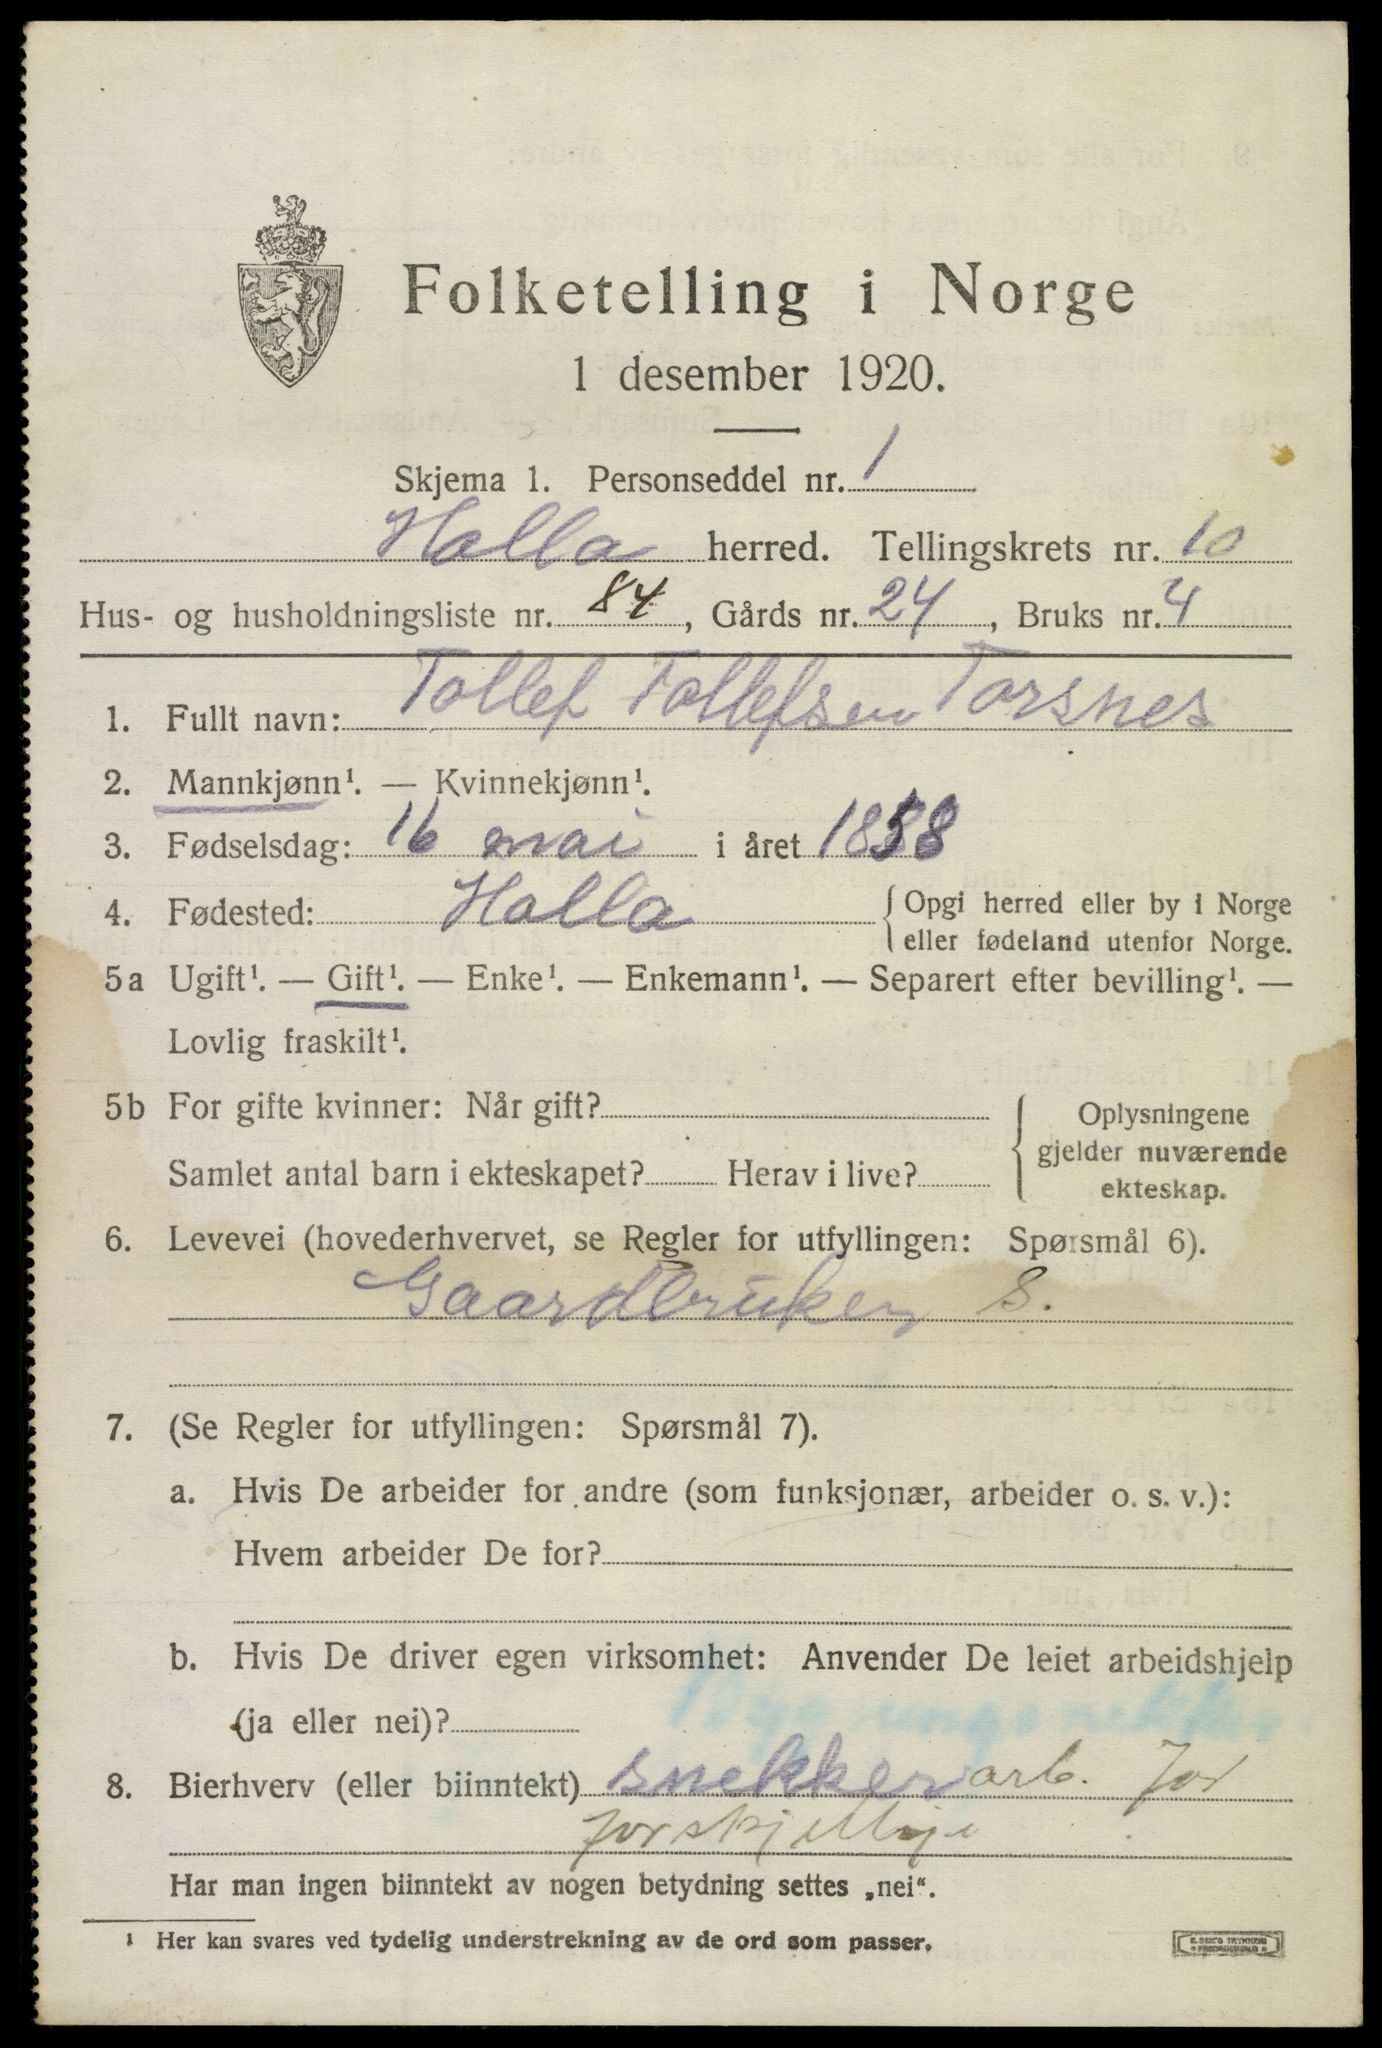 Folketelling i Norge
1 desember 1920.
Skjema 1. Personseddel nr. 1
Holla herred. Tellingskrets nr. 10
Hus- og husholdningsliste nr. 84, Gårds nr. 24, Bruks nr. 4
1. Fullt navn: Tollef Tollefsen Torsnes
2. Mannkjønn¹. — Kvinnekjønn¹.
3. Fødselsdag: 16 mai i året
4. Fødested: Holla { Opgi herred eller by i Norge
eller fødeland utenfor Norge.
5a Ugift¹. — Gift¹. — Enke¹. — Enkemann¹. — Separert efter bevilling¹. —
Lovlig fraskilt¹.
5b For gifte kvinner: Når gift? { Oplysningene
gjelder nuværende
Samlet antal barn i ekteskapet? Herav i live? ekteskap.
6. Levevei (hovederhvervet, se Regler for utfyllingen: Spørsmål 6).
Gaardbruker S.
7. (Se Regler for utfyllingen: Spørsmål 7).
a. Hvis De arbeider for andre (som funksjonær, arbeider o. s. v.):
Hvem arbeider De for?
b. Hvis De driver egen virksomhet: Anvender De leiet arbeidshjelp
(ja eller nei)?
8. Bierhverv (eller biinntekt) snekker arb. for
forskjellige
Har man ingen biinntekt av nogen betydning settes „nei“.
¹ Her kan svares ved tydelig understrekning av de ord som passer.